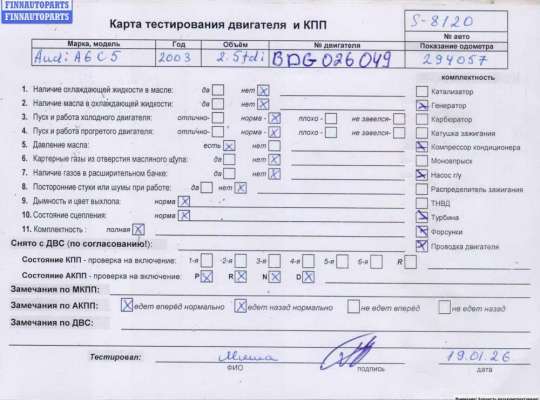 FINNAUTOPARTS
FINNAUTOPARTS
Карта тестирования двигателя и КПП
S-8120
№ авто
Марка, модель Год Объём № двигателя Показание одометра
Audi A6C5 2003 2.5tdi BDG026049 294057
комплектность
1. Наличие охлаждающей жидкости в масле: да нет
2. Наличие масла в охлаждающей жидкости: да нет
3. Пуск и работа холодного двигателя: отлично- норма - плохо - не завелся-
4. Пуск и работа прогретого двигателя: отлично- норма - плохо - не завелся-
5. Давление масла: есть нет
6. Картерные газы из отверстия масляного щупа: да нет
7. Наличие газов в расширительном бачке: да нет
8. Посторонние стуки или шумы при работе: да нет
9. Дымность и цвет выхлопа: норма
10. Состояние сцепления: норма
11. Комплектность : полная
Катализатор
Генератор
Карбюратор
Катушка зажигания
Компрессор кондиционера
Моновпрыск
Насос г/у
Распределитель зажигания
ТНВД
Турбина
Форсунки
Проводка двигателя
Снято с ДВС (по согласованию!):
Состояние КПП - проверка на включение: 1-я -2-я 3-я 4-я 5-я 6-я R
Состояние АКПП - проверка на включение: P R N D
Замечания по МКПП:
Замечания по АКПП: едет вперёд нормально едет назад нормально не едет вперёд не едет назад
Замечания по ДВС:
Тестировал: Миша 19.01.26
ФИО подпись дата